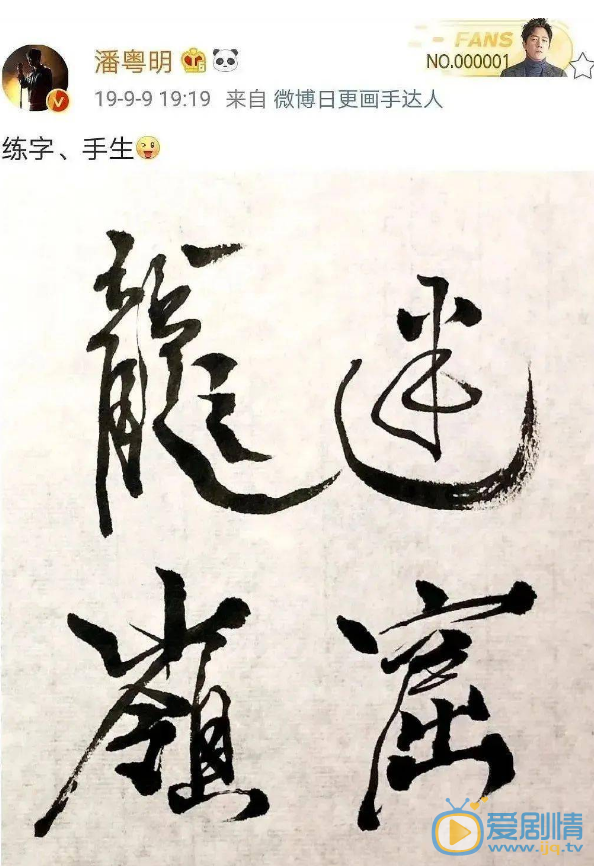 潘粤明
FANS
NO.000001
19-9-9 19:19 来自 微博日更画手达人
练字、手生
龍迷
嶺窟
爱剧情
www.ijq.tv